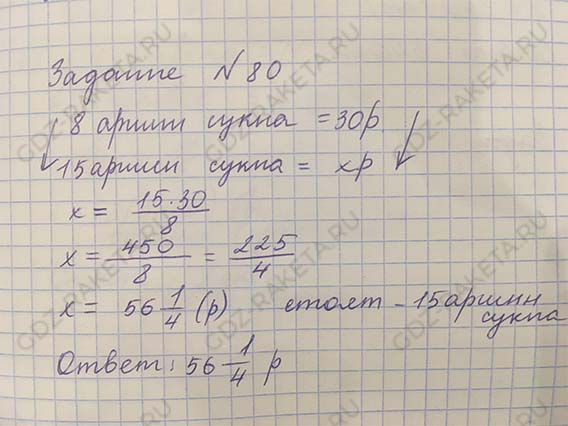 Задание №80
8 аршин сукна = 30р.
15 аршин сукна = хр
х = 15·30/8
х = 450/8 = 225/4
х = 56 1/4 (р) стоят - 15 аршин
сукна
Ответ: 56 1/4 р
GDZ-RAKETA.RU